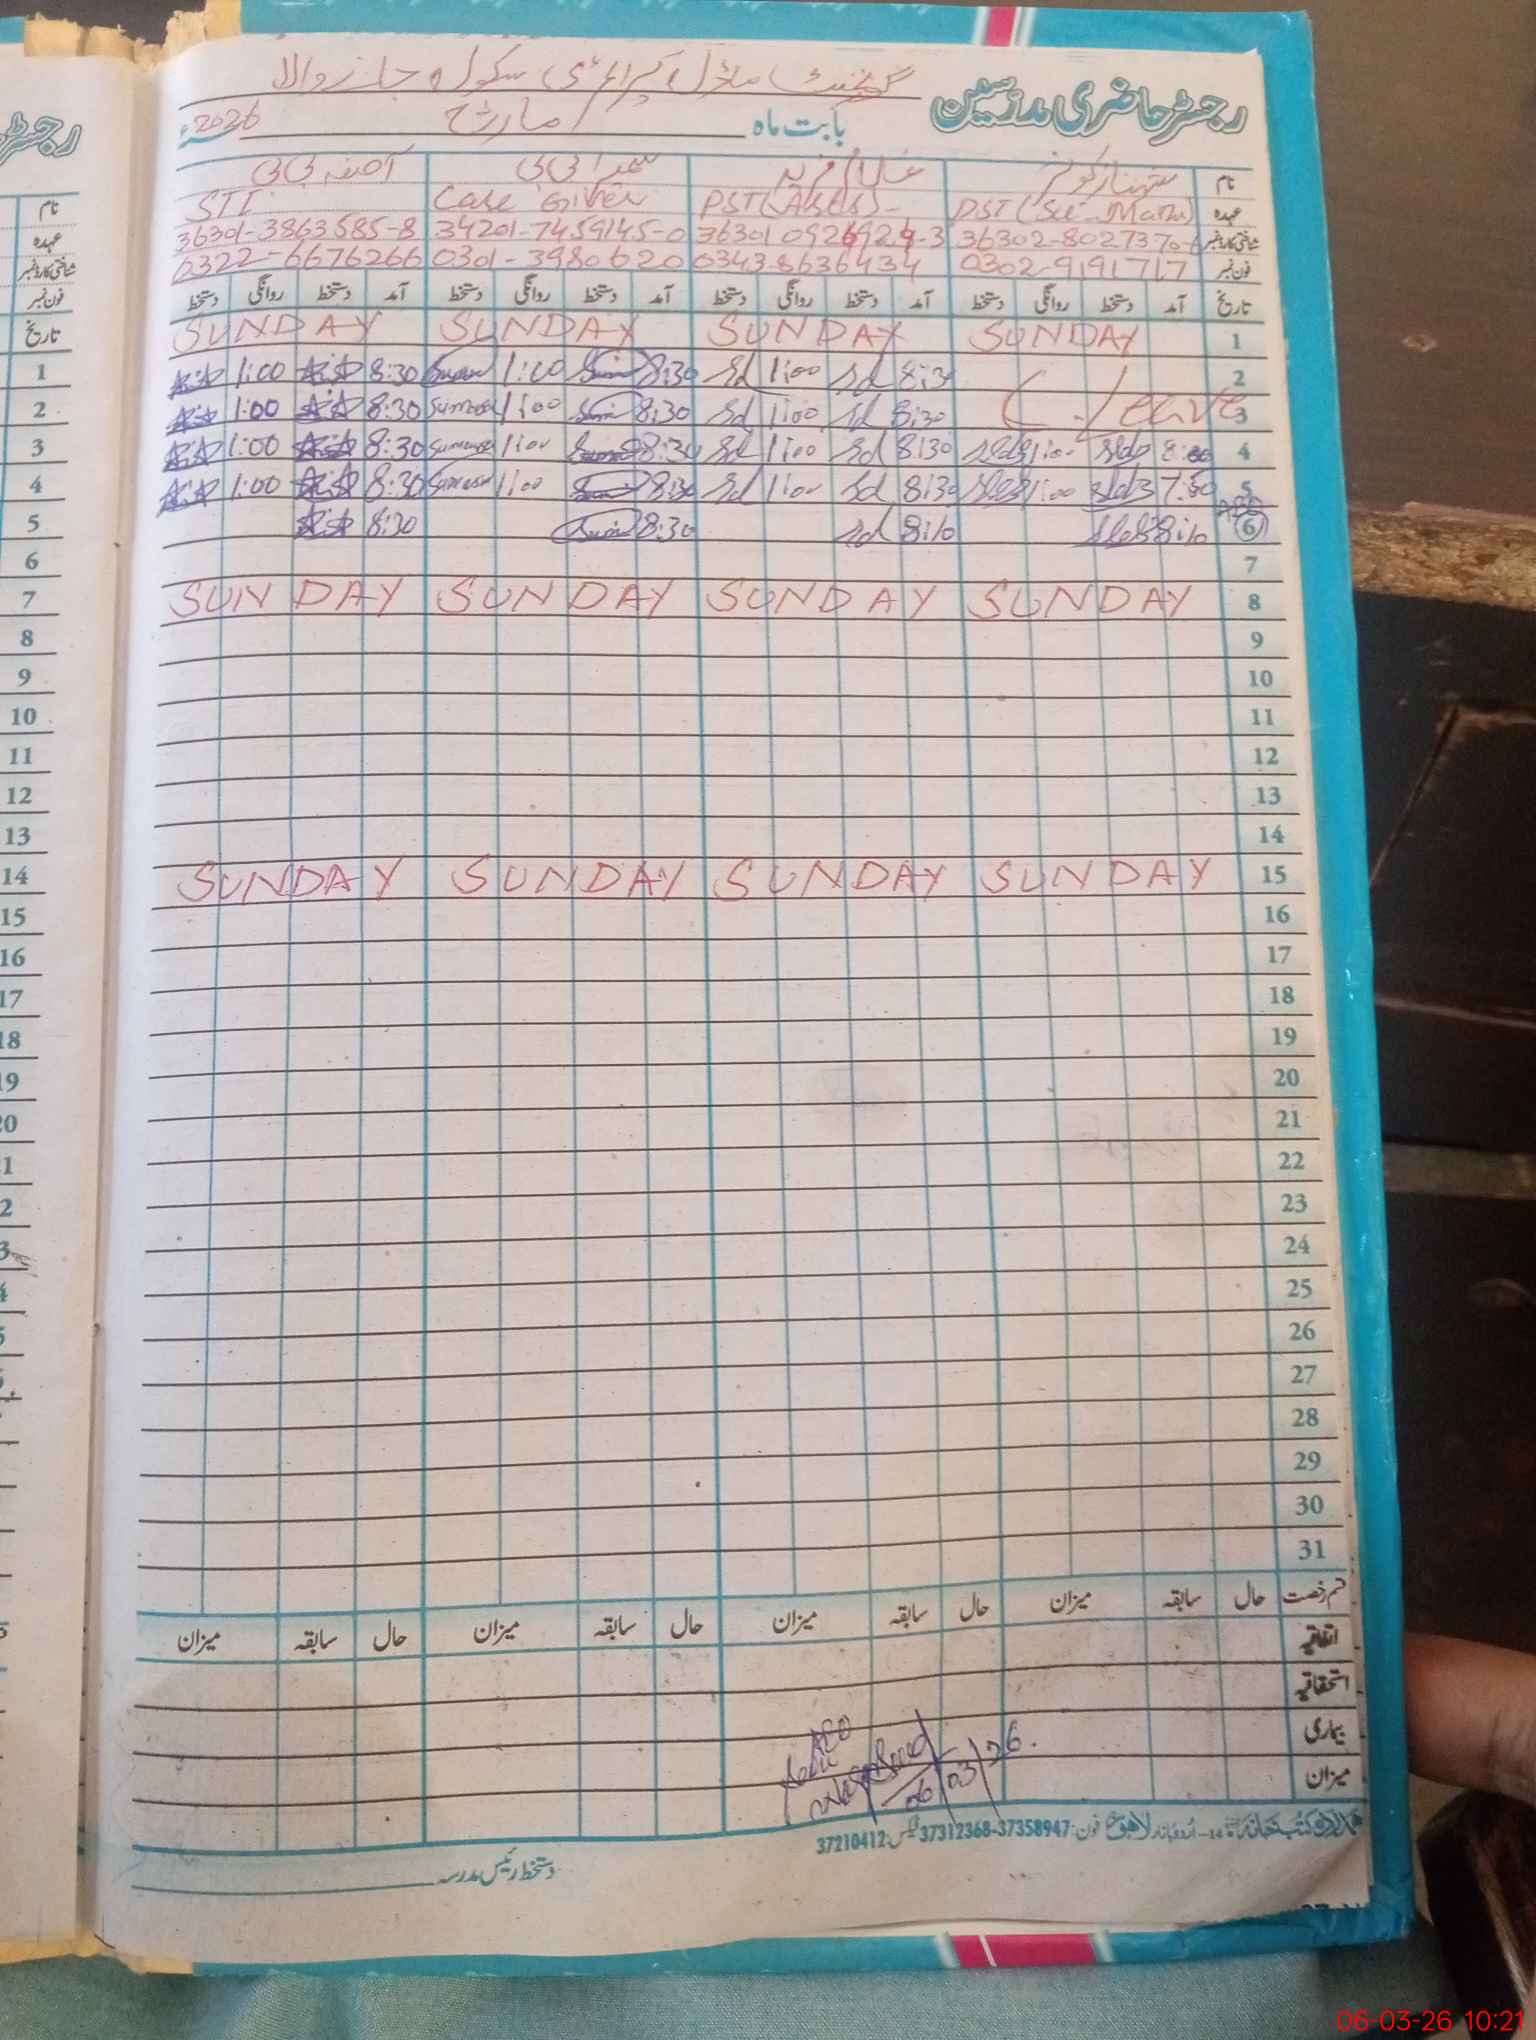 رجسٹر حاضری مدرسین گورنمنٹ ماڈل پرائمری سکول
بابت ماہ مارچ 2026
نام شہناز کوثر غلام فرید سمیرا بی بی آصفہ بی بی
عہدہ PST (Sci-Math) PST (Arts) Care Giver STI
شناختی کارڈ نمبر 36302-8027370- 36301 0926929-3 34201-7459145-0 36301-3863585-8
فون نمبر 0302-9191717 0343-8636434 0301-3980620 0322-6676266
تاریخ آمد دستخط روانگی دستخط آمد دستخط روانگی دستخط آمد دستخط روانگی دستخط آمد دستخط روانگی دستخط
1 SUNDAY SUNDAY SUNDAY SUNDAY
2 8:3 Sd 1:00 Sd 8:30 1:00 8:30 1:00
3 C. Leave 8:30 Sd 1:00 Sd 8:30 1:00 8:30 1:00
4 8:00 1:00 8:30 Sd 1:00 Sd 8:30 1:00 8:30 1:00
5 7:50 1:00 8:30 Sd 1:00 Sd 8:30 1:00 8:30 1:00
6 8:10 8:10 Sd 8:30 8:30
7
8 SUNDAY SUNDAY SUNDAY SUNDAY
9
10
11
12
13
14
15 SUNDAY SUNDAY SUNDAY SUNDAY
16
17
18
19
20
21
22
23
24
25
26
27
28
29
30
31
قسم رخصت حال سابقہ میزان حال سابقہ میزان حال سابقہ میزان حال سابقہ میزان
اتفاقیہ
استحقاقیہ
بیماری
میزان
AEO
06/03/26.
14-اردو بازار لاہور فون: 37358947-37312368 فیکس: 37210412
دستخط رئیس مدرسہ
رجسٹر
نام
عہدہ
شناختی کارڈ نمبر
فون نمبر
تاریخ
1
2
3
4
5
6
7
8
9
10
11
12
13
14
15
16
17
18
19
06-03-26 10:21